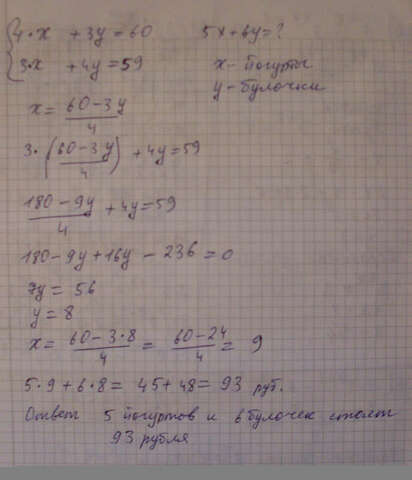 4·x + 3y = 60 5x + 6y = ?
3·x + 4y = 59 x - йогурты
y - булочки
x = (60 - 3y)/4
3·((60 - 3y)/4) + 4y = 59
(180 - 9y)/4 + 4y = 59
180 - 9y + 16y - 236 = 0
7y = 56
y = 8
x = (60 - 3·8)/4 = (60 - 24)/4 = 9
5·9 + 6·8 = 45 + 48 = 93 руб.
Ответ 5 йогуртов и 6 булочек стоят
93 рубля